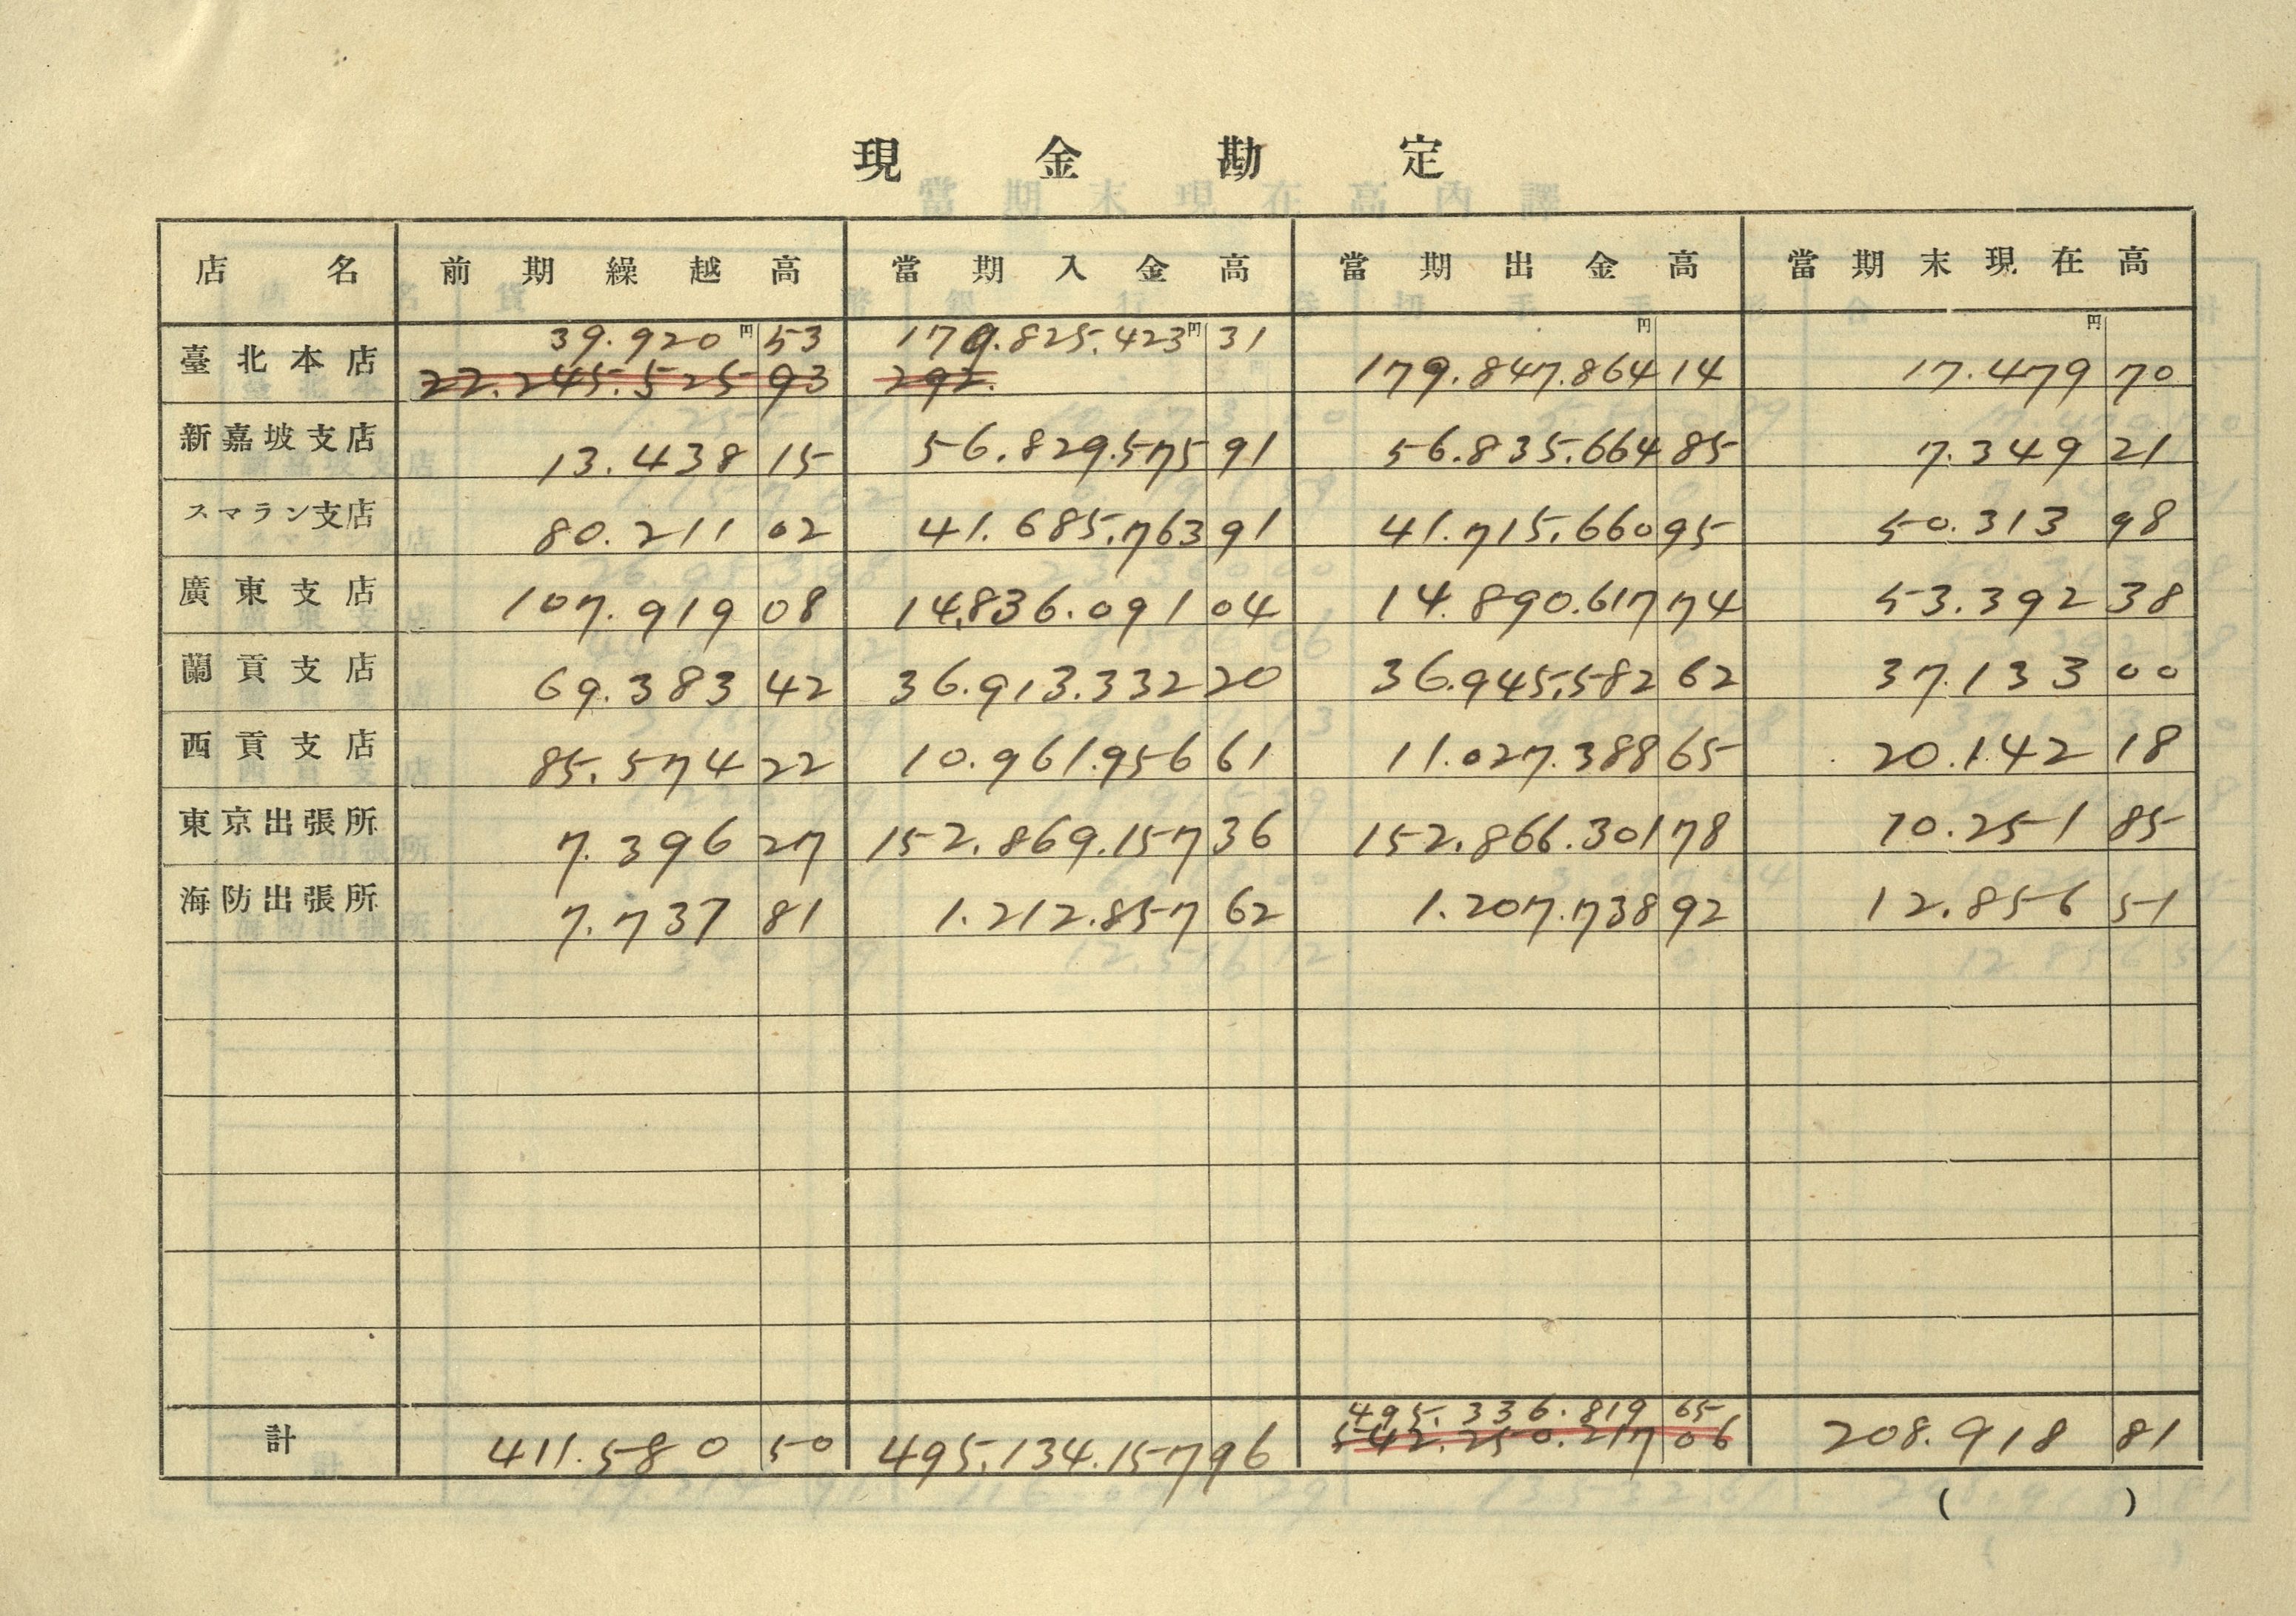 現金勘定
店名 前期繰越高 當期入金高 當期出金高 當期末現在高
臺北本店 39.920円53 179.825.423円31 円 円
22.245.525 93 292. 179.847.864 14 17.479 70
新嘉坡支店 13.438 15 56.829.575 91 56.835.664 85 7.349 21
スマラン支店 80.211 02 41.685.763 91 41.715.660 95 50.313 98
廣東支店 107.919 08 14.836.091 04 14.890.617 74 53.392 38
蘭貢支店 69.383 42 36.913.332 20 36.945.582 62 37.133 00
西貢支店 85.574 22 10.961.956 61 11.027.388 65 20.142 18
東京出張所 7.396 27 152.869.157 36 152.866.301 78 10.251 85
海防出張所 7.737 81 1.212.857 62 1.207.738 92 12.856 51
495.336.819 65
計 411.580 50 495.134.157 96 542.250.217 06 208.918 81
( )